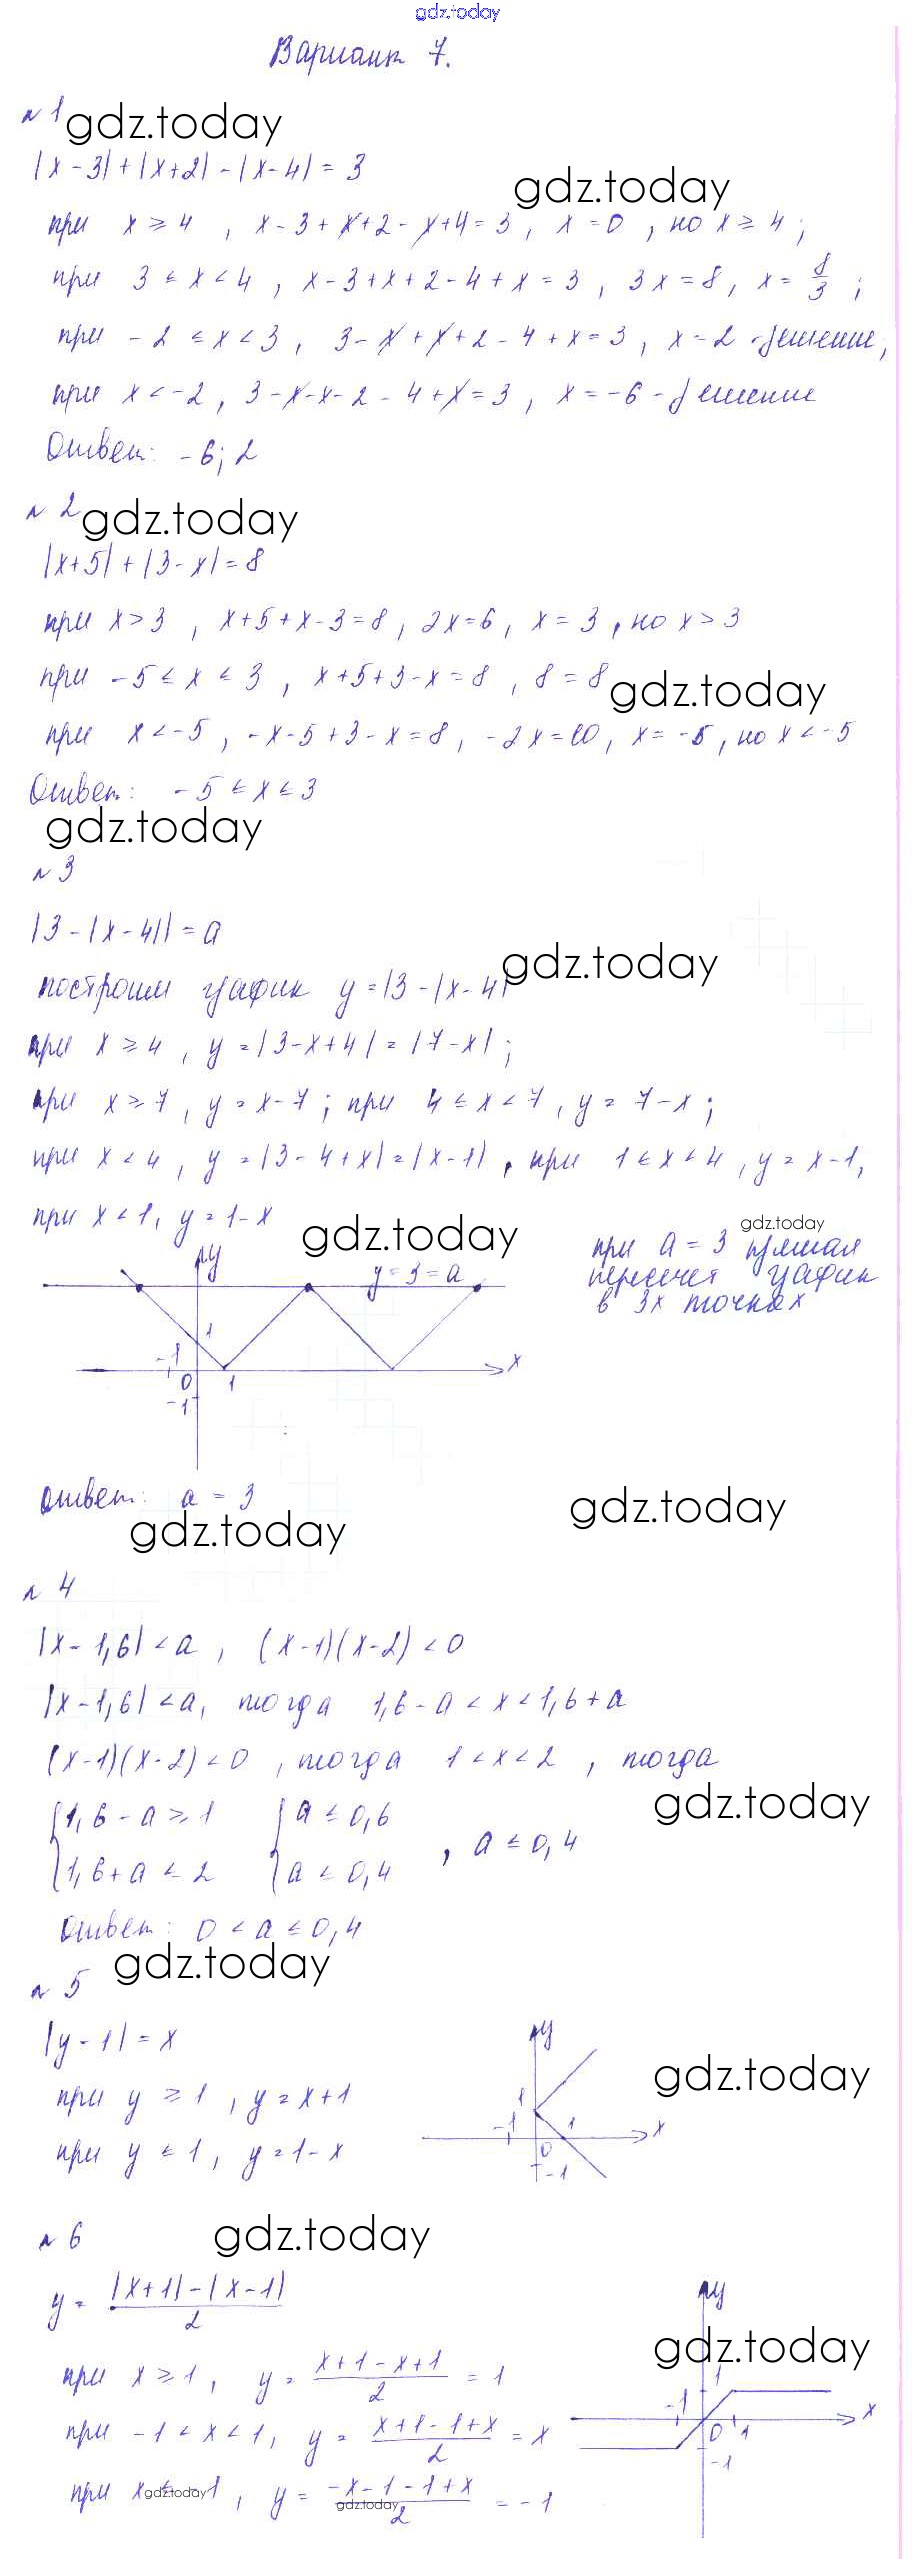 gdz.today
Вариант 7.
№1
gdz.today
|x-3|+|x+2|-|x-4|=3
gdz.today
при x ≥ 4, x-3+x+2-x+4=3, x=0, но x ≥ 4;
при 3 ≤ x < 4, x-3+x+2-4+x=3, 3x=8, x=8/3;
при -2 ≤ x < 3, 3-x+x+2-4+x=3, x=2 - решение;
при x < -2, 3-x-x-2-4+x=3, x=-6 - решение
Ответ: -6; 2
№2
gdz.today
|x+5|+|3-x|=8
при x > 3, x+5+x-3=8, 2x=6, x=3, но x > 3
при -5 ≤ x ≤ 3, x+5+3-x=8, 8=8
gdz.today
при x < -5, -x-5+3-x=8, -2x=10, x=-5, но x < -5
Ответ: -5 ≤ x ≤ 3
gdz.today
№3
|3-|x-4||=a
gdz.today
построим график y=|3-|x-4|
при x ≥ 4, y=|3-x+4|=|7-x|;
при x ≥ 7, y=x-7; при 4 ≤ x < 7, y=7-x;
при x < 4, y=|3-4+x|=|x-1|, при 1 ≤ x < 4, y=x-1,
при x < 1, y=1-x
gdz.today
gdz.today
при a=3 прямая
пересечет график
в 3х точках
y
y=3=a
1
-1
0
1
x
-1
Ответ: a=3
gdz.today
gdz.today
№4
|x-1,6|<a, (x-1)(x-2)<0
|x-1,6|<a, тогда 1,6-a<x<1,6+a
(x-1)(x-2)<0, тогда 1<x<2, тогда
gdz.today
{1,6-a ≥ 1 {a ≤ 0,6
{1,6+a ≤ 2 {a ≤ 0,4, a ≤ 0,4
Ответ: 0 < a ≤ 0,4
gdz.today
№5
|y-1|=x
при y ≥ 1, y=x+1
при y ≤ 1, y=1-x
gdz.today
y
1
-1
0
1
x
-1
№6
gdz.today
y=(|x+1|-|x-1|)/2
при x ≥ 1, y=(x+1-x+1)/2=1
при -1 < x < 1, y=(x+1-1+x)/2=x
при x ≤ -1, y=(-x-1-1+x)/2=-1
gdz.today
gdz.today
gdz.today
y
1
-1
0
1
x
-1